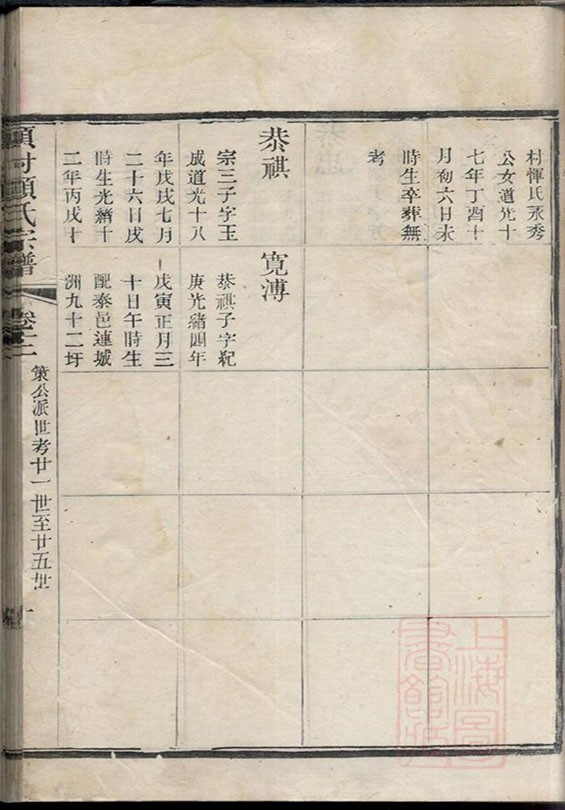 村惲氏永秀
公女道光十
七年丁酉十
月初六日未
時生卒葬無
考
恭祺
宗三子字玉
成道光十八
年戊戌七月
二十六日戌
時生光緒十
二年丙戌十
寬溥
恭祺子字紀
庚光緒四年
戊寅正月三
十日午時生
配泰邑連城
洲九十二圩
顧氏宗譜
卷十二
策公派世考廿一世至廿五世
上海圖
書館藏